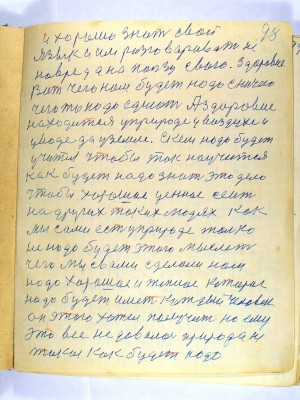 98
и хорошо знат свой
язык и им разговариват не
повред а на ползу свого. Здоровие
Вот чего нам будет надо с ничего
чего то надо сдиот А Здоровие
находится уприроде у воздухе и
уводе да уземле. Скем надо будет
учится чтобы так научится
как будет надо знат это дело
чтобы хорошое ценное сеит
на других таких людях как
мы сами ест уприроде толко
не надо будет этого мыслет
чего мы свами сделали нам
надо Хорошое и теплое которае
надо будет имет Каждый человек
он этого хотел получит но ему
это все недавала природа не
такои как будет надо